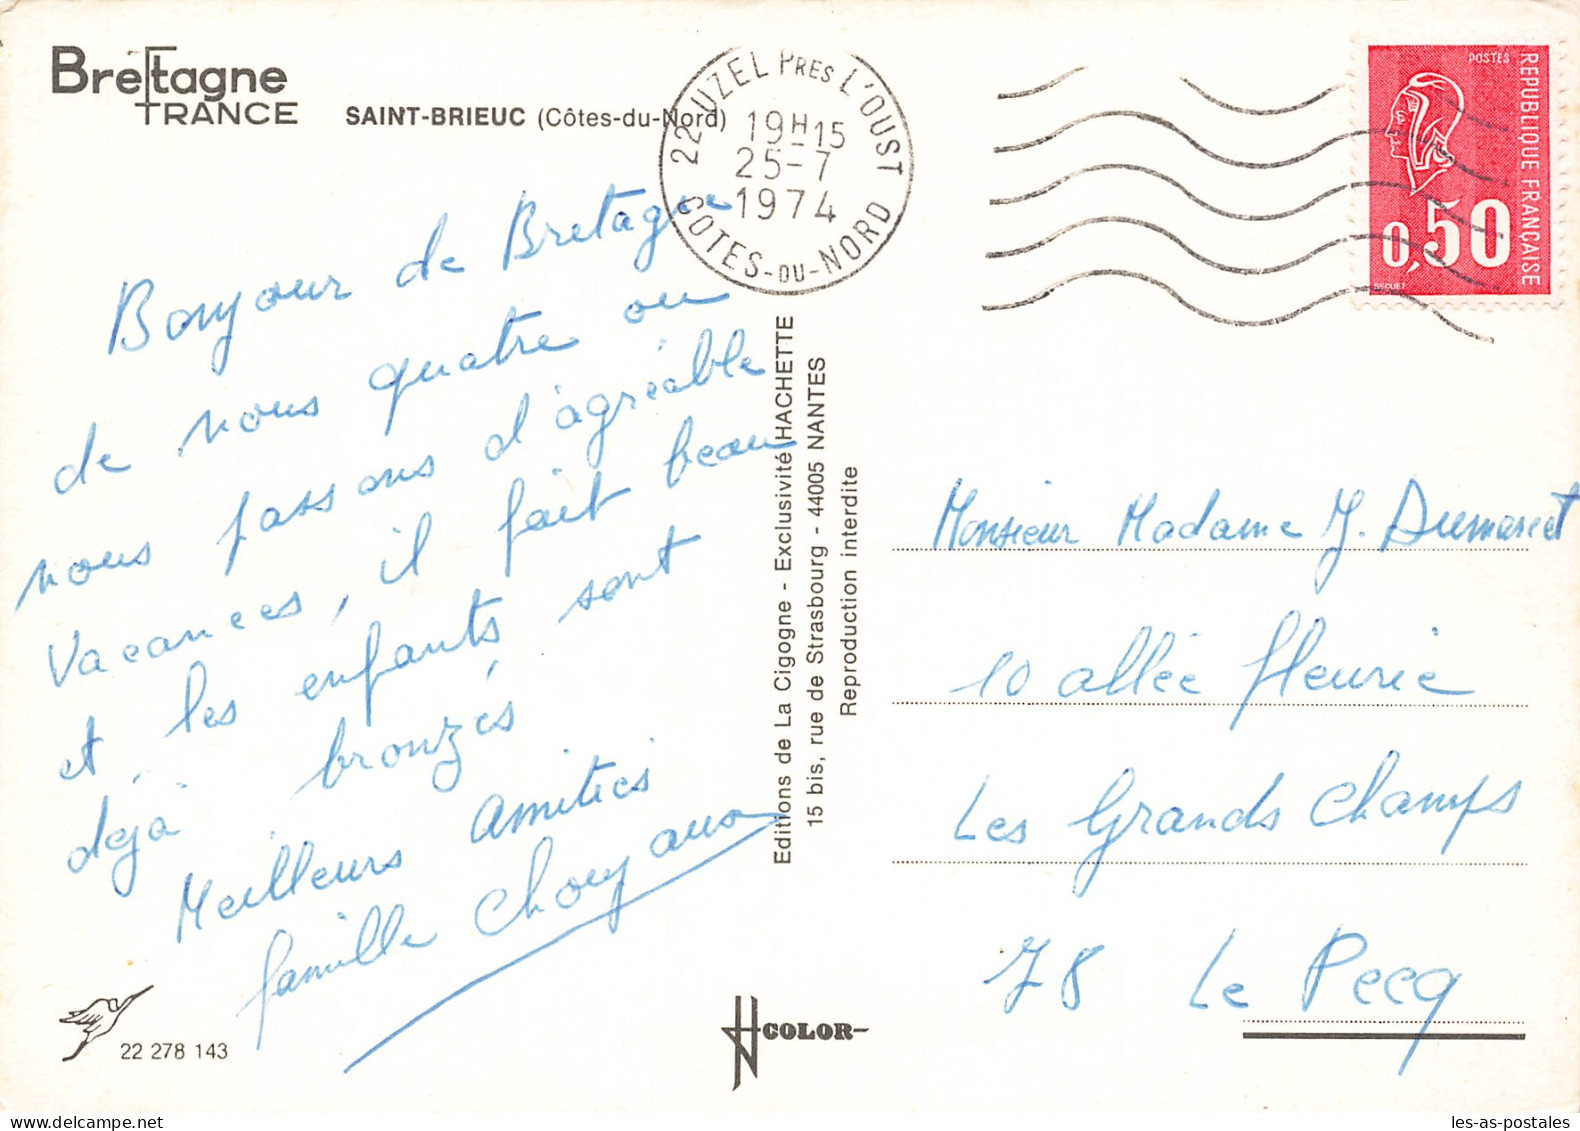 Bretagne
FRANCE
SAINT-BRIEUC (Côtes-du-Nord)
22 UZEL PRES L'OUST
19H15
25-7
1974
COTES-DU-NORD
POSTES
REPUBLIQUE FRANÇAISE
0,50
BEQUET
Bonjour de Bretagne
de nous quatre ou
nous passons d'agréable
Vacances, il fait beau
et les enfants sont
déjà bronzés
Meilleurs Amitiés
famille
Editions de La Cigogne - Exclusivité HACHETTE
15 bis, rue de Strasbourg - 44005 NANTES
Reproduction interdite
Monsieur Madame J.
10 allée fleurie
Les Grands Champs
78 Le Pecq
22 278 143
COLOR
les-as-postales